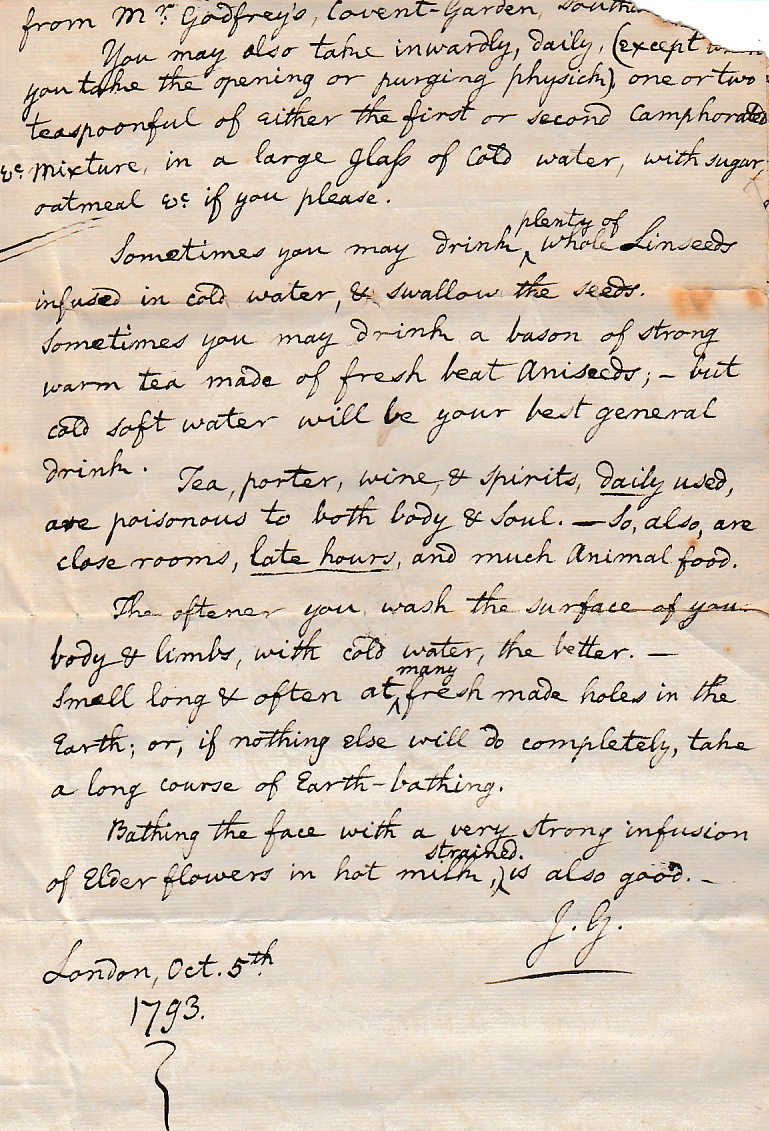 from Mr. Godfrey's, Covent-Garden, South
You may also take inwardly, daily, (except when
you take the opening or purging physick), one or two
teaspoonful of either the first or second Camphorated
&c. Mixture, in a large Glaſs of Cold water, with sugar,
oatmeal &c if you please.
Sometimes you may drink ^ plenty of whole Linseeds
infused in cold water, & swallow the seeds.
Sometimes you may drink a bason of strong
warm tea made of fresh beat Aniseeds; – but
cold soft water will be your best general
drink. Tea, porter, wine, & spirits, daily used,
are poisonous to both body & Soul. – So, also, are
close rooms, late hours, and much Animal food.
The oftener you wash the surface of your
body & limbs, with cold water, the better. –
Smell long & often at ^ many fresh made holes in the
Earth; or, if nothing else will do completely, take
a long course of Earth-bathing.
Bathing the face with a very strong infusion
of Elder flowers in hot milk, strained, is also good. –
J. G.
London, Oct. 5th
1793.